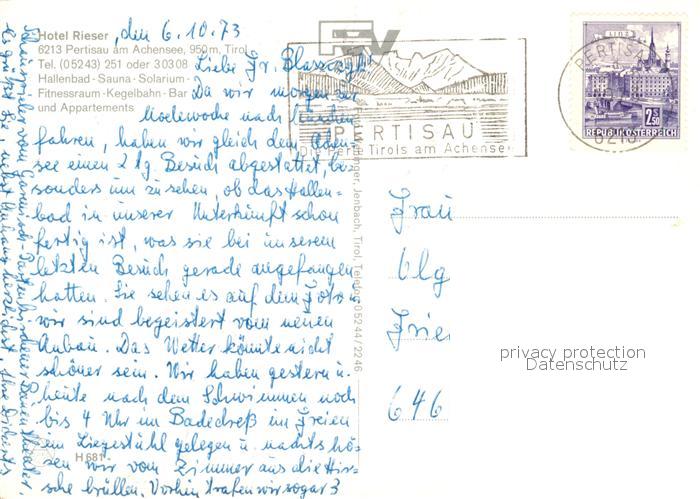 Hotel Rieser
6213 Pertisau am Achensee, 950 m, Tirol
Tel. (05243) 251 oder 30308
Hallenbad · Sauna · Solarium ·
Fitnessraum · Kegelbahn · Bar
und Appartements
, den 6.10.73
Liebe Fr.
Da wir morgen zur
Modewoche nach München
fahren, haben wir gleich dem Achen-
see einen 2 tg. Besuch abgestattet, be-
sonders um zu sehen, ob das Hallen-
bad in unserer Unterkunft schon
fertig ist, was sie bei unserem
letzten Besuch gerade angefangen
hatten. Sie sehen es auf dem Foto u.
wir sind begeistert vom neuen
Anbau. Das Wetter könnte nicht
schöner sein. Wir haben gestern u.
heute nach dem Schwimmen noch
bis 4 Uhr im Badedreß im Freien
im Liegestühl gelegen u. nachts hö-
ren wir vom Zimmer aus die Hir-
sche brüllen. Vorhin trafen wir sogar 3
Schauspieler vom Garmisch-Partenkirchener Bauerntheater.
Es grüßt Sie, nebst Anhang herzlichst, Ihre
H 681
Jenbach, Tirol, Telefon 05244/2246
PERTISAU
Die Perle Tirols am Achensee
PERTISAU
6213
LINZ
2.50
REPUBLIK ÖSTERREICH
Frau
Olg
Frie
646
privacy protection
Datenschutz